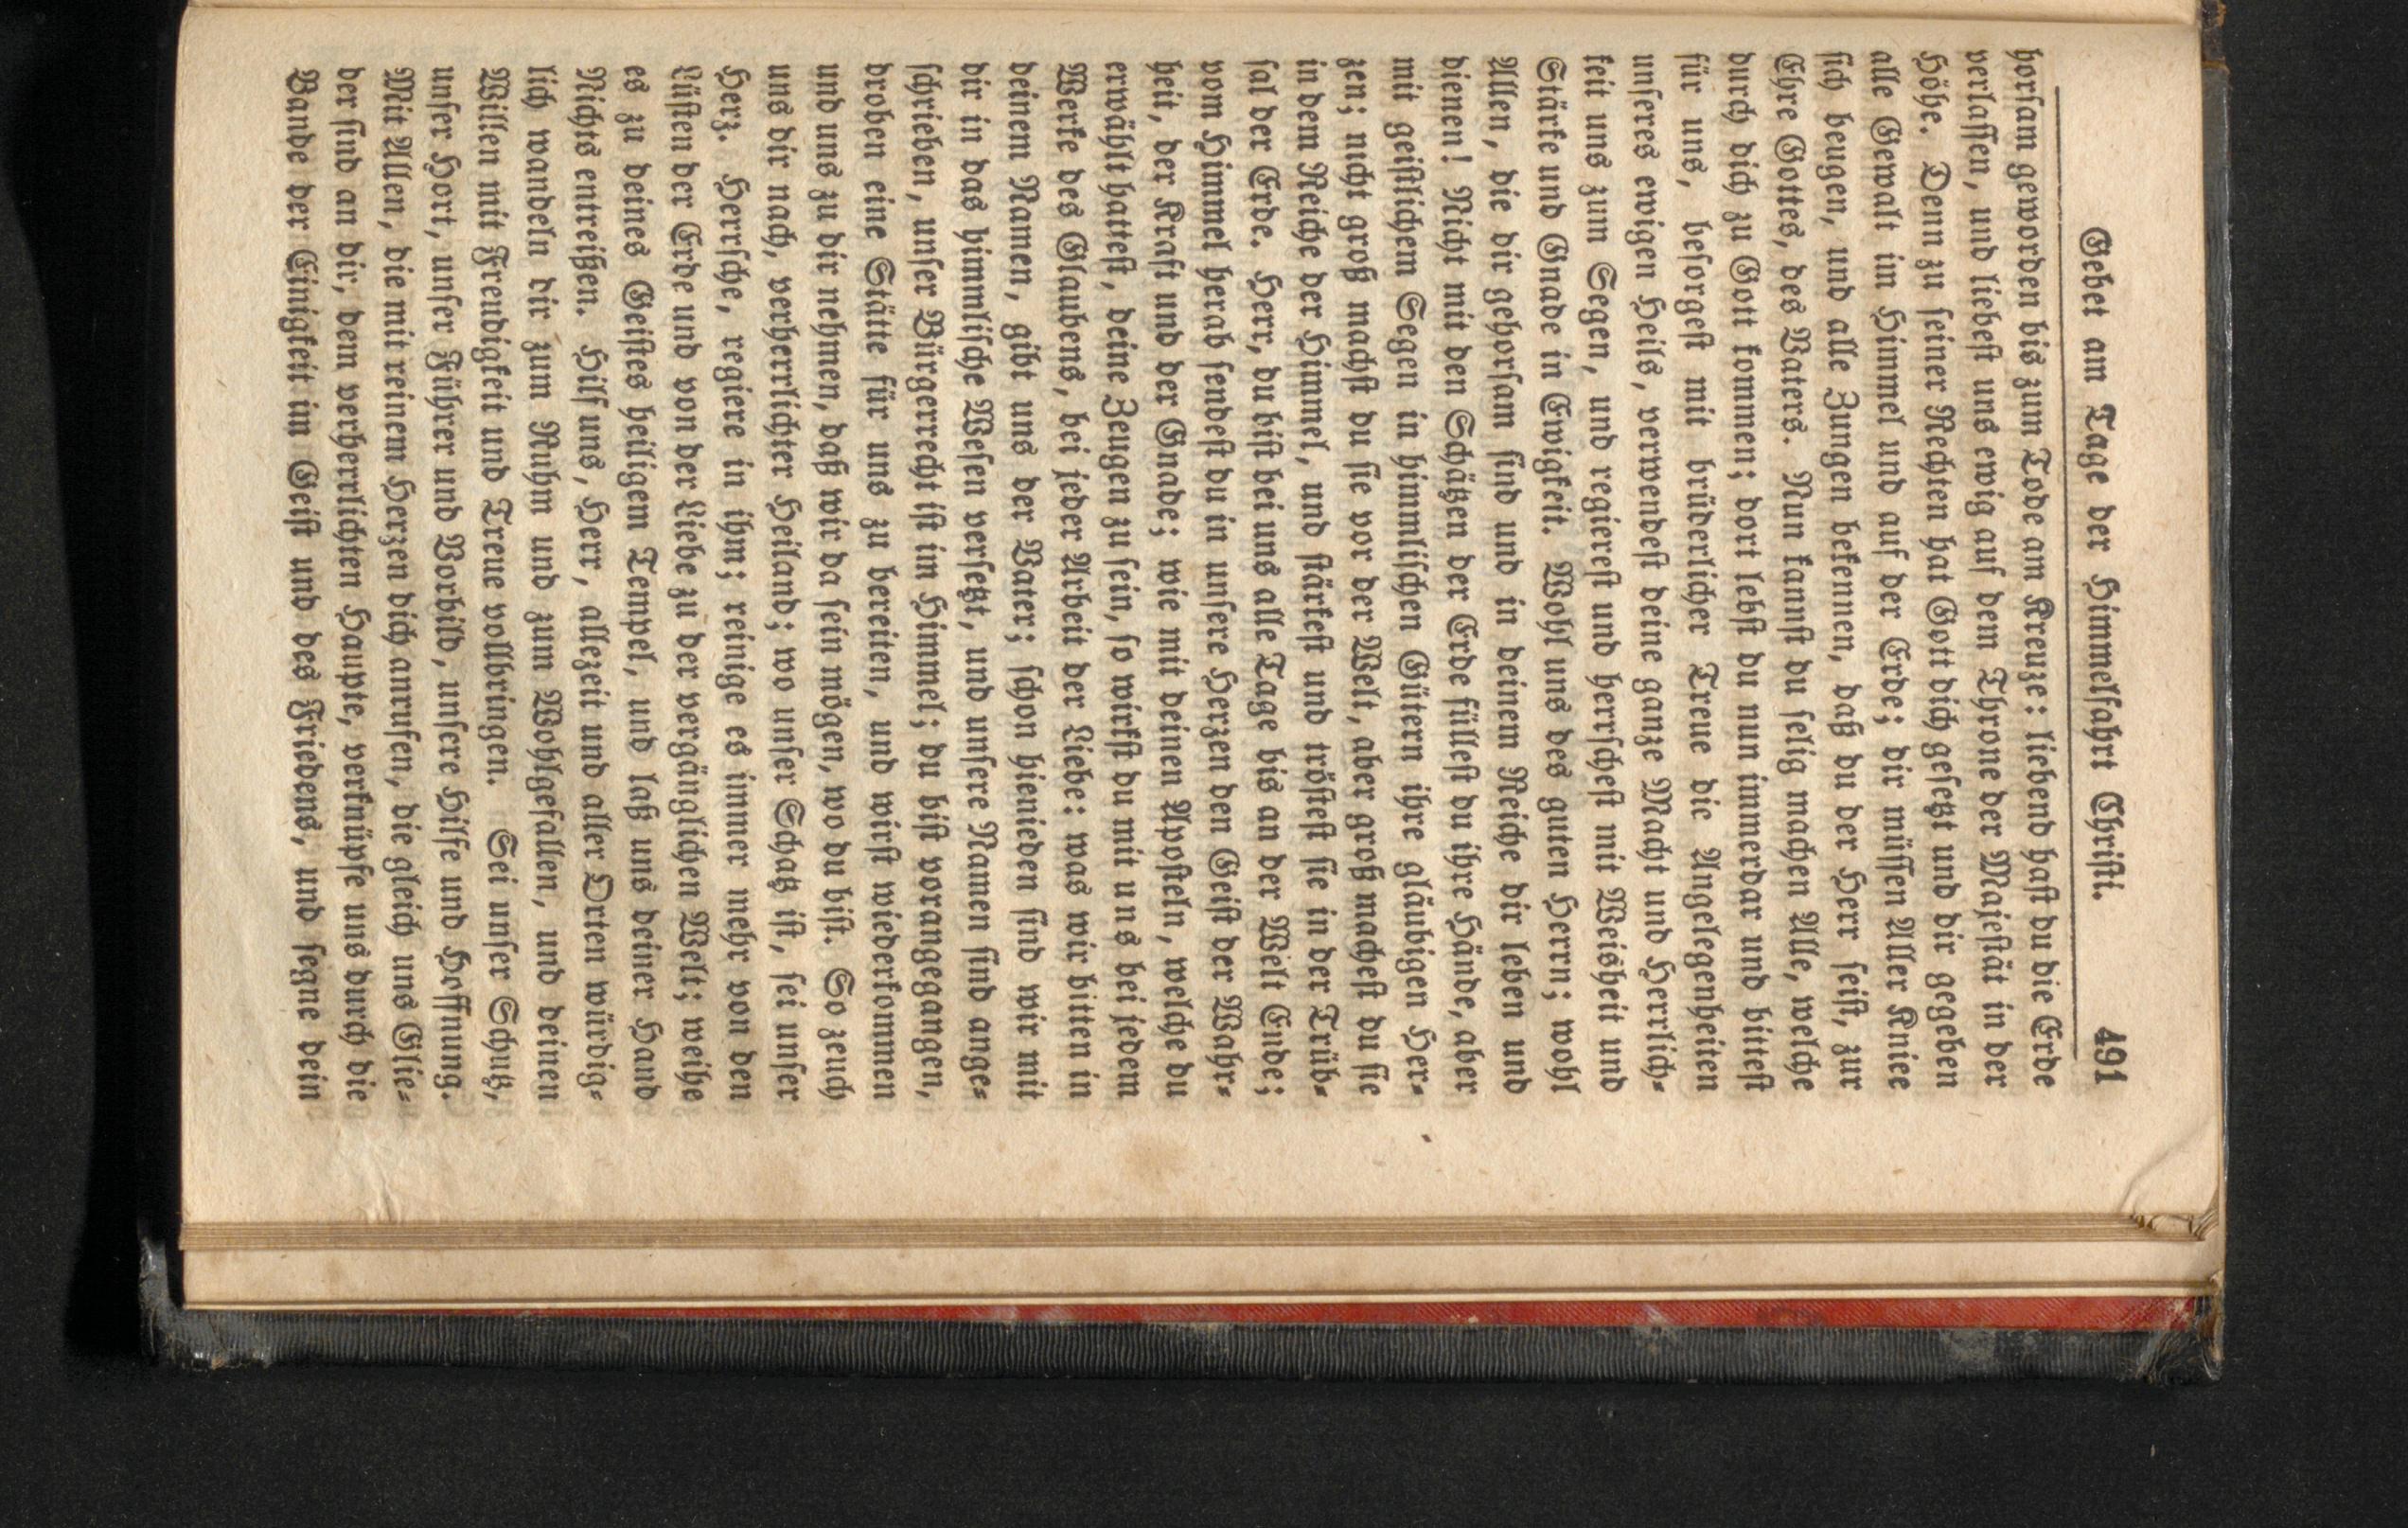 Gebet am Tage der Himmelfahrt Christi. 491
horsam geworden bis zum Tode am Kreuze: liebend hast du die Erde
verlassen, und liebest uns ewig auf dem Throne der Majestät in der
Höhe. Denn zu seiner Rechten hat Gott dich gesetzt und dir gegeben
alle Gewalt im Himmel und auf der Erde; dir müssen Aller Kniee
sich beugen, und alle Zungen bekennen, daß du der Herr seist, zur
Ehre Gottes, des Vaters. Nun kannst du selig machen Alle, welche
durch dich zu Gott kommen; dort lebst du nun immerdar und bittest
für uns, besorgest mit brüderlicher Treue die Angelegenheiten
unseres ewigen Heils, verwendest deine ganze Macht und Herrlich-
keit uns zum Segen, und regierest und herrschest mit Weisheit und
Stärke und Gnade in Ewigkeit. Wohl uns des guten Herrn; wohl
Allen, die dir gehorsam sind und in deinem Reiche dir leben und
dienen! Nicht mit den Schätzen der Erde füllest du ihre Hände, aber
mit geistlichem Segen in himmlischen Gütern ihre gläubigen Her-
zen; nicht groß machst du sie vor der Welt, aber groß machest du sie
in dem Reiche der Himmel, und stärkest und tröstest sie in der Trüb-
sal der Erde. Herr, du bist bei uns alle Tage bis an der Welt Ende;
vom Himmel herab sendest du in unsere Herzen den Geist der Wahr-
heit, der Kraft und der Gnade; wie mit deinen Aposteln, welche du
erwählt hattest, deine Zeugen zu sein, so wirkst du mit uns bei jedem
Werke des Glaubens, bei jeder Arbeit der Liebe: was wir bitten in
deinem Namen, gibt uns der Vater; schon hienieden sind wir mit
dir in das himmlische Wesen versetzt, und unsere Namen sind ange-
schrieben, unser Bürgerrecht ist im Himmel; du bist vorangegangen,
droben eine Stätte für uns zu bereiten, und wirst wiederkommen
und uns zu dir nehmen, daß wir da sein mögen, wo du bist. So zeuch
uns dir nach, verherrlichter Heiland; wo unser Schatz ist, sei unser
Herz. Herrsche, regiere in ihm; reinige es immer mehr von den
Lüsten der Erde und von der Liebe zu der vergänglichen Welt; weihe
es zu deines Geistes heiligem Tempel, und laß uns deiner Hand
Nichts entreißen. Hilf uns, Herr, allezeit und aller Orten würdig-
lich wandeln dir zum Ruhm und zum Wohlgefallen, und deinen
Willen mit Freudigkeit und Treue vollbringen. Sei unser Schutz,
unser Hort, unser Führer und Vorbild, unsere Hilfe und Hoffnung.
Mit Allen, die mit reinem Herzen dich anrufen, die gleich uns Glie-
der sind an dir, dem verherrlichten Haupte, verknüpfe uns durch die
Bande der Einigkeit im Geist und des Friedens, und segne dein